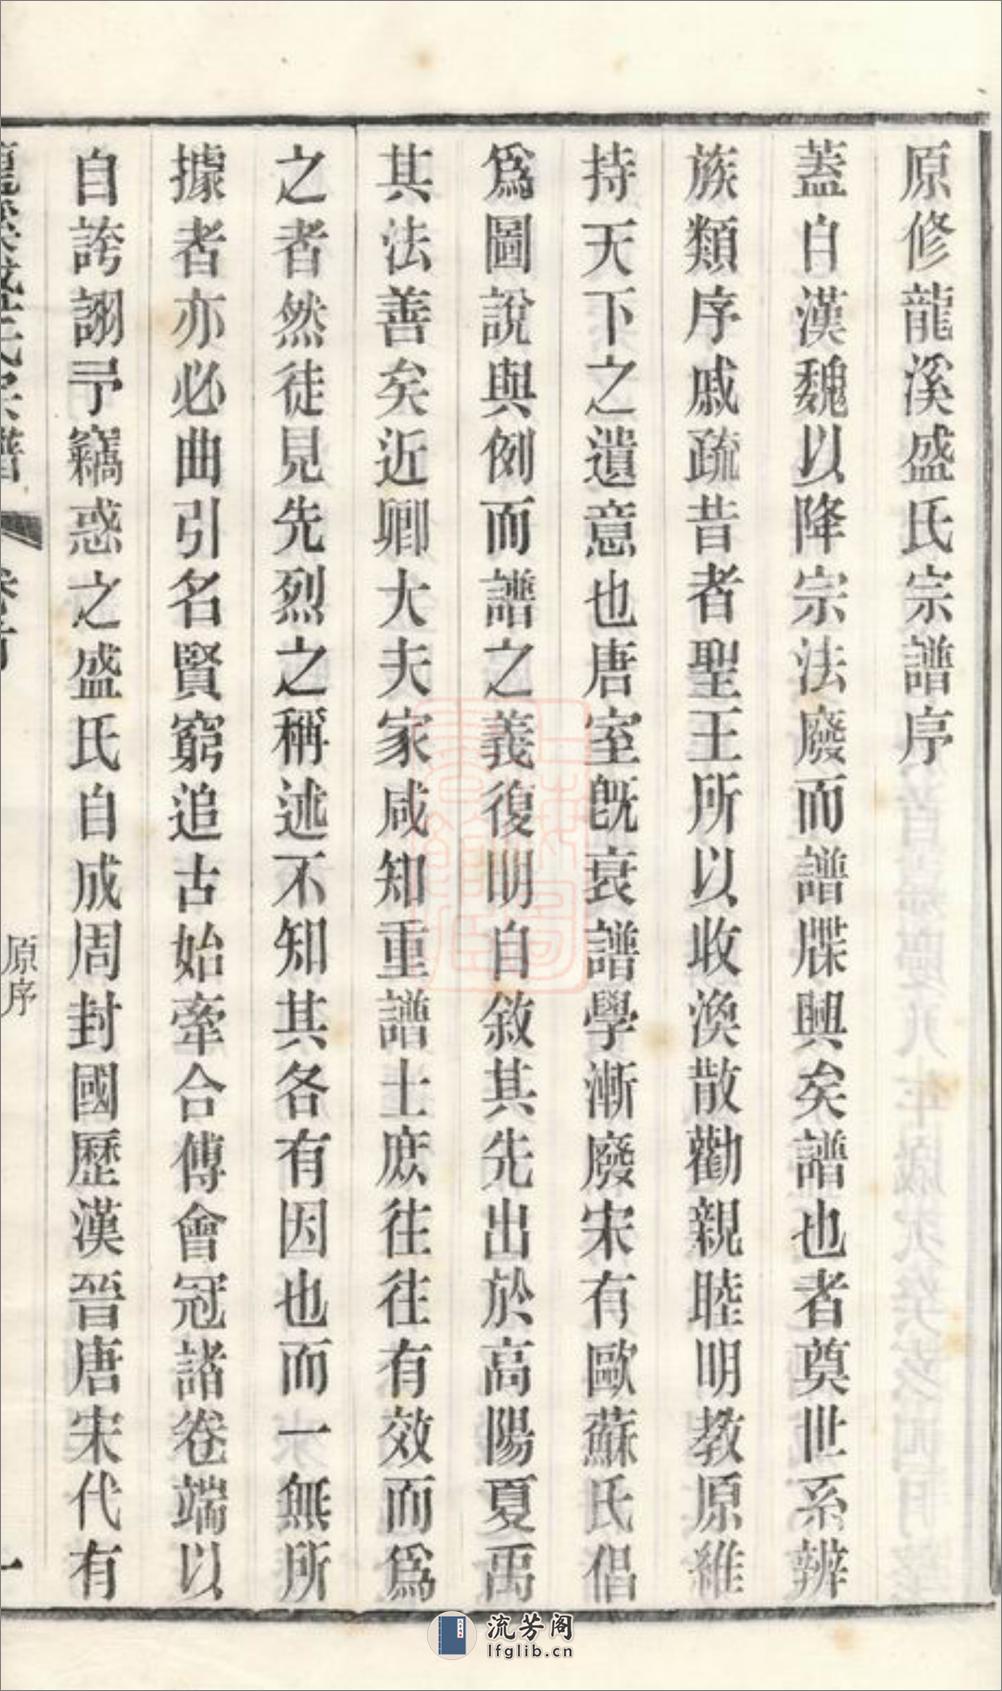 原修龍溪盛氏宗譜序
蓋自漢魏以降宗法廢而譜牒興矣譜也者奠世系辨
族類序戚疏昔者聖王所以收渙散勸親睦明教原維
持天下之遺意也唐室旣衰譜學漸廢宋有歐蘇氏倡
爲圖說與例而譜之義復明自敘其先出於高陽夏禹
其法善矣近卿大夫家咸知重譜士庶往往有效而爲
之者然徒見先烈之稱述不知其各有因也而一無所
據者亦必曲引名賢窮追古始牽合傅會冠諸卷端以
自誇詡予竊惑之盛氏自成周封國歷漢晉唐宋代有
龍溪盛氏宗譜
卷首
原序
一
流芳阁
lfglib.cn